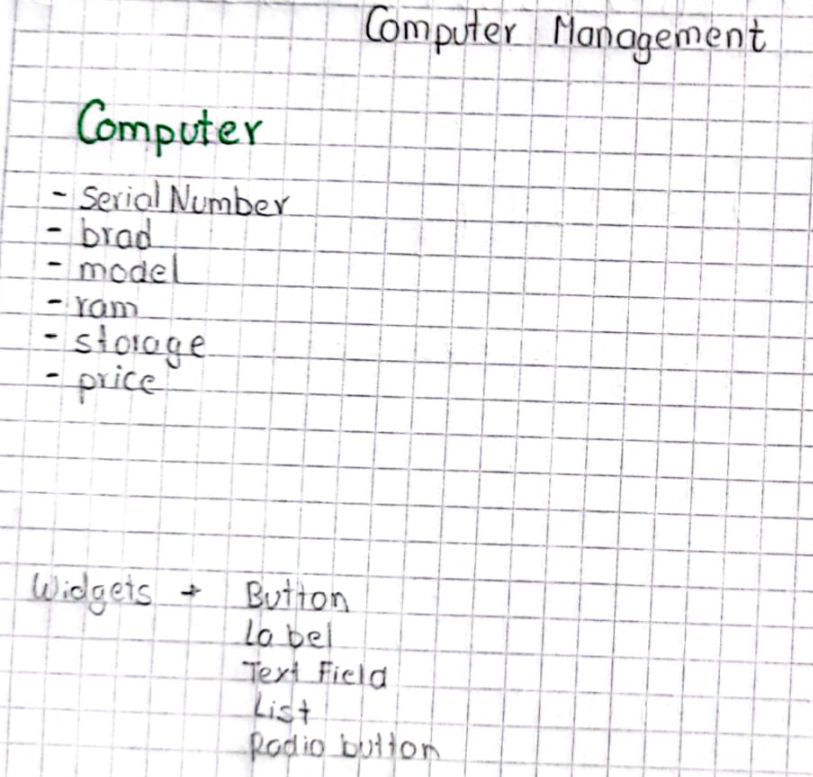 Computer Management
Computer
- Serial Number
- brad
- model
- ram
- storage
- price
Widgets → Button
Label
Text Field
List
Radio button